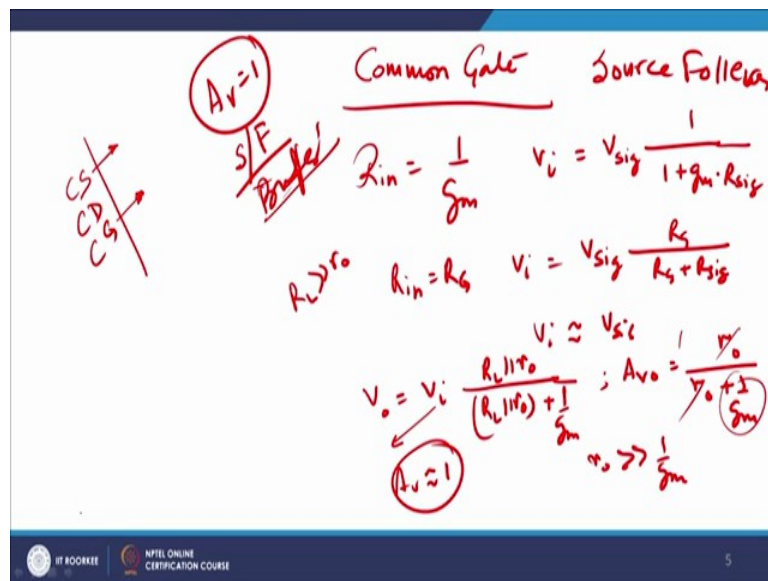 Common Gate Source Follower
Av=1
S/F
Buffer
CS
CD
CG
Rin = 1/gm vi = Vsig 1/(1+gm·Rsig)
RL≫ro Rin = RG vi = Vsig RG/(RG + Rsig)
vi ≈ Vsig
Vo = vi (RL||ro)/((RL||ro) + 1/gm) ; Avo = ro/(ro + 1/gm) 1
Av≈1
ro ≫ 1/gm
IIT ROORKEE
NPTEL ONLINE
CERTIFICATION COURSE
5